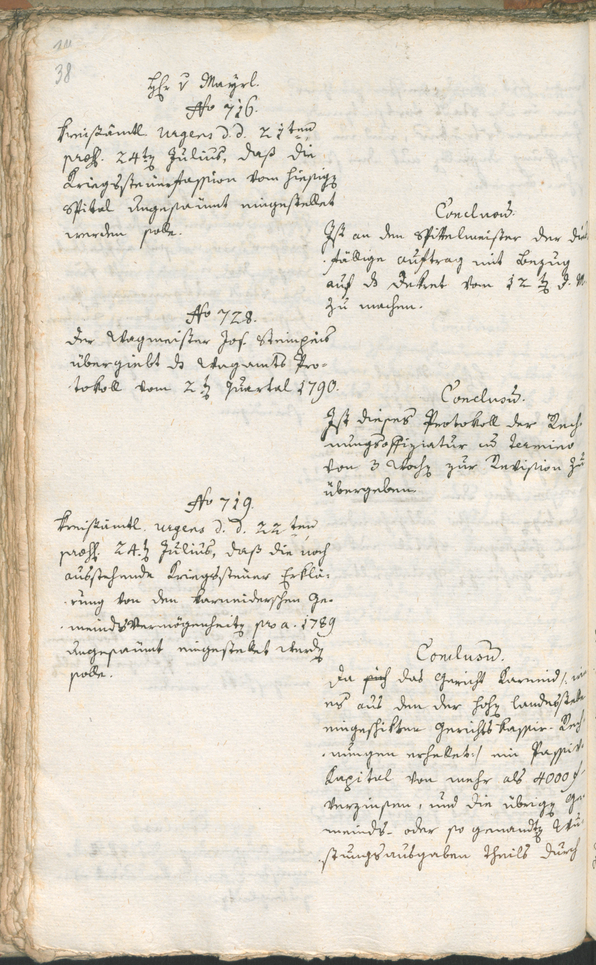 38
Hr v Mayrl.
No 716.
Kreisämtl. urgens d. d. 21ten
præs. 24ten Julius, daß die
Kriegssteuerfassion vom hiesigen
Spital ungesaumt eingestellet
werden solle.
Conclusum.
Ist an den Spittelmeister der dies
fällige auftrag mit Bezug
auf das Dekret vom 12ten d. M.
zu machen.
No 728.
Der Wagmeister Jos. Steinpeis
übergiebt das Wagamts Pro-
tokoll vom 2ten Quartal 1790.
Conclusum.
Ist dieses Protokoll der Rech-
nungsoffiziatur in termino
von 3 Wochen zur Revision zu
übergeben.
No 719.
Kreisämtl. urgens d. d. 22ten
præs. 24ten Julius, daß die noch
ausstehende Kriegssteuer Erklä-
rung von den Karneiderschen Ge-
meindsvermögenheiten pro a. 1789
ungesaumt eingestellet werden
solle.
Conclusum.
Da sich das Gericht Karneid /: wie
es aus den der hohen Landesstelle
eingeschikten Gerichtskassier-Rech-
nungen erhellet :/ ein Passiv-
Kapital von mehr als 4000 f
verzinsen, und die übrigen Ge-
meinds- oder so genandten Wu-
stungsausgaben theils durch